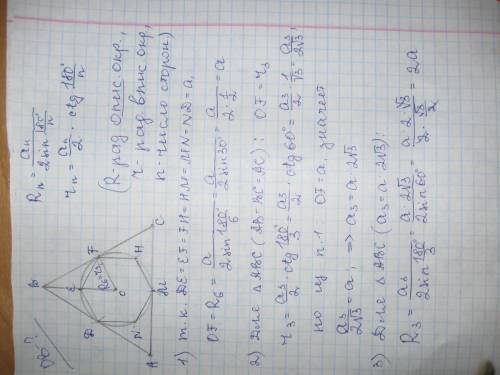 R_n = a_n / (2 sin 180°/n)
r_n = a_n / 2 · ctg 180°/n
(R - рад опис окр.,
r - рад впис окр,
n - число сторон)
B
D E F
R₆=r₃
O
N H
A M C
1) т.к. DE=EF=FH=HM=MN=ND=a,
OF=R₆= a / (2 sin 180°/6) = a / (2 sin 30°) = a / (2·1/2) = a
2) Для △ABC (AB=BC=AC): OF=r₃
r₃ = a₃/2 · ctg 180°/3 = a₃/2 · ctg 60° = a₃/2 · 1/√3 = a₃/2√3,
но из п.1 OF=a, значит
a₃/2√3 = a, => a₃ = a·2√3
3) Для △ABC (a₃ = a·2√3):
R₃ = a₃ / (2 sin 180°/3) = a·2√3 / (2 sin 60°) = a·2√3 / (2·√3/2) = 2a